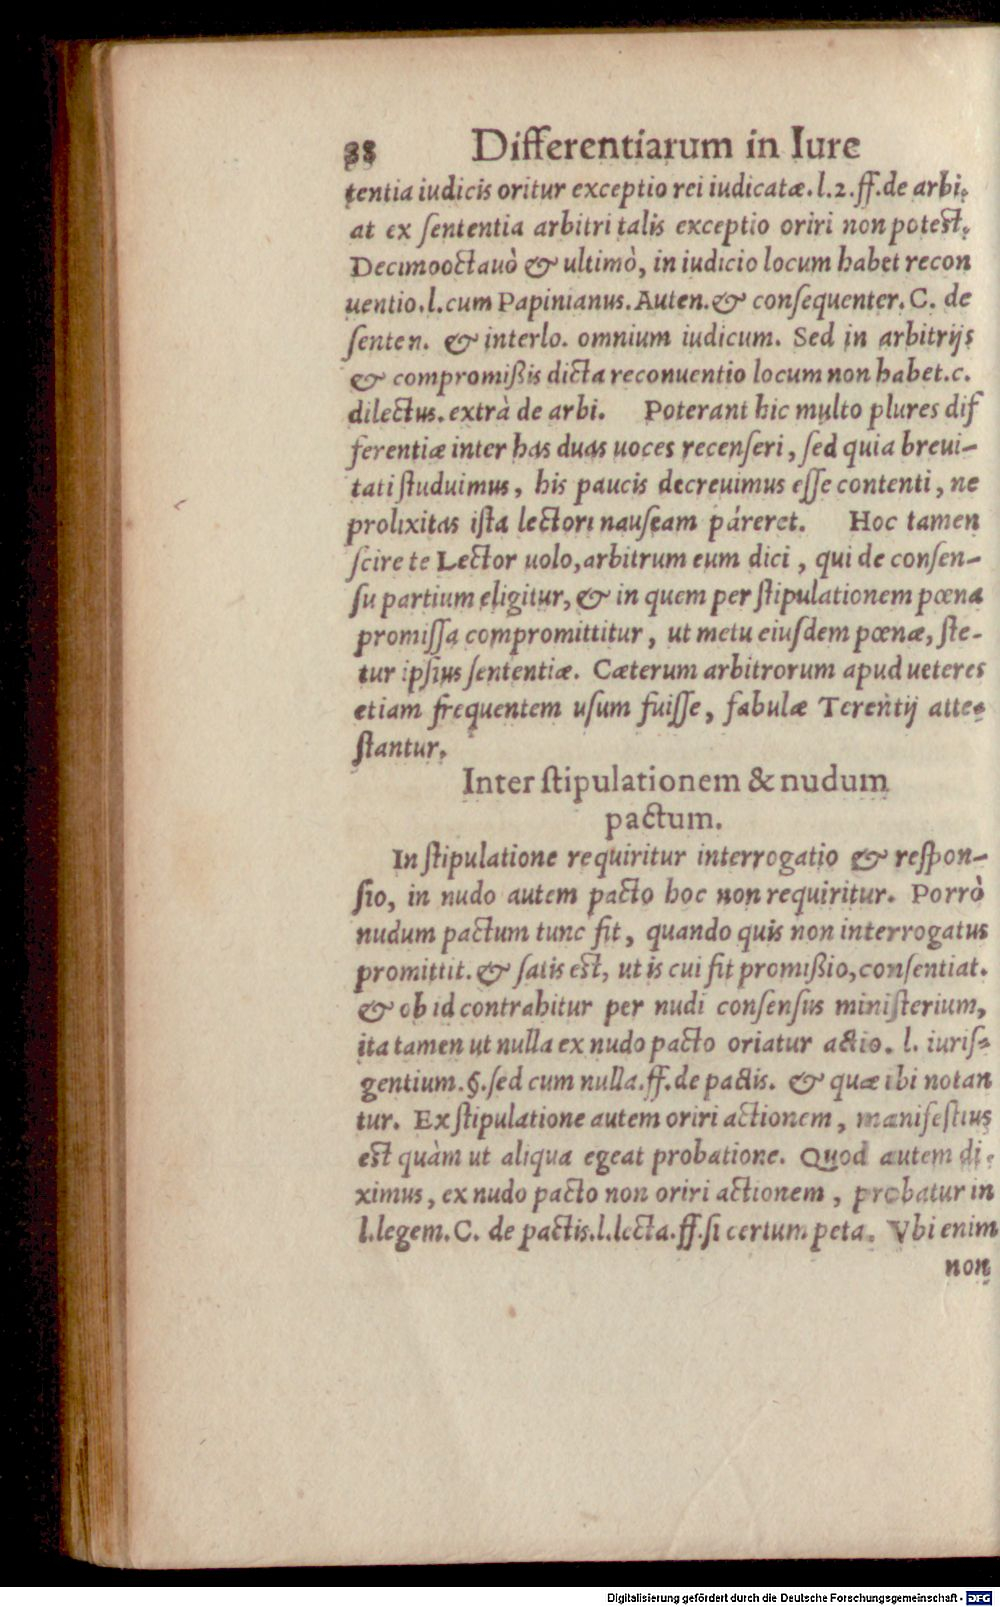 38 Differentiarum in Iure
tentia iudicis oritur exceptio rei iudicatæ. l. 2. ff. de arbi.
at ex ſententia arbitri talis exceptio oriri non poteſt.
Decimooctauò & ultimò, in iudicio locum habet recon
uentio. l. cum Papinianus. Auten. & conſequenter. C. de
ſenten. & interlo. omnium iudicum. Sed in arbitrijs
& compromißis dicta reconuentio locum non habet. c.
dilectus. extrà de arbi. Poterant hic multo plures dif
ferentiæ inter has duas uoces recenſeri, ſed quia breui-
tati ſtuduimus, his paucis decreuimus eſſe contenti, ne
prolixitas iſta lectori nauſeam páreret. Hoc tamen
ſcire te Lector uolo, arbitrum eum dici, qui de conſen-
ſu partium eligitur, & in quem per ſtipulationem pœna
promiſſa compromittitur, ut metu eiuſdem pœnæ, ſte-
tur ipſius ſententiæ. Cæterum arbitrorum apud ueteres
etiam frequentem uſum fuiſſe, fabulæ Terentij atte-
ſtantur.
Inter ſtipulationem & nudum
pactum.
In ſtipulatione requiritur interrogatio & reſpon-
ſio, in nudo autem pacto hoc non requiritur. Porrò
nudum pactum tunc fit, quando quis non interrogatus
promittit. & ſatis eſt, ut is cui fit promißio, conſentiat.
& ob id contrahitur per nudi conſenſus miniſterium,
ita tamen ut nulla ex nudo pacto oriatur actio. l. iuriſ-
gentium. §. ſed cum nulla. ff. de pactis. & quæ ibi notan
tur. Ex ſtipulatione autem oriri actionem, manifeſtius
eſt quàm ut aliqua egeat probatione. Quod autem di-
ximus, ex nudo pacto non oriri actionem, probatur in
l. legem. C. de pactis. l. lecta. ff. ſi certum peta. Vbi enim
non
Digitalisierung gefördert durch die Deutsche Forschungsgemeinschaft - DFG